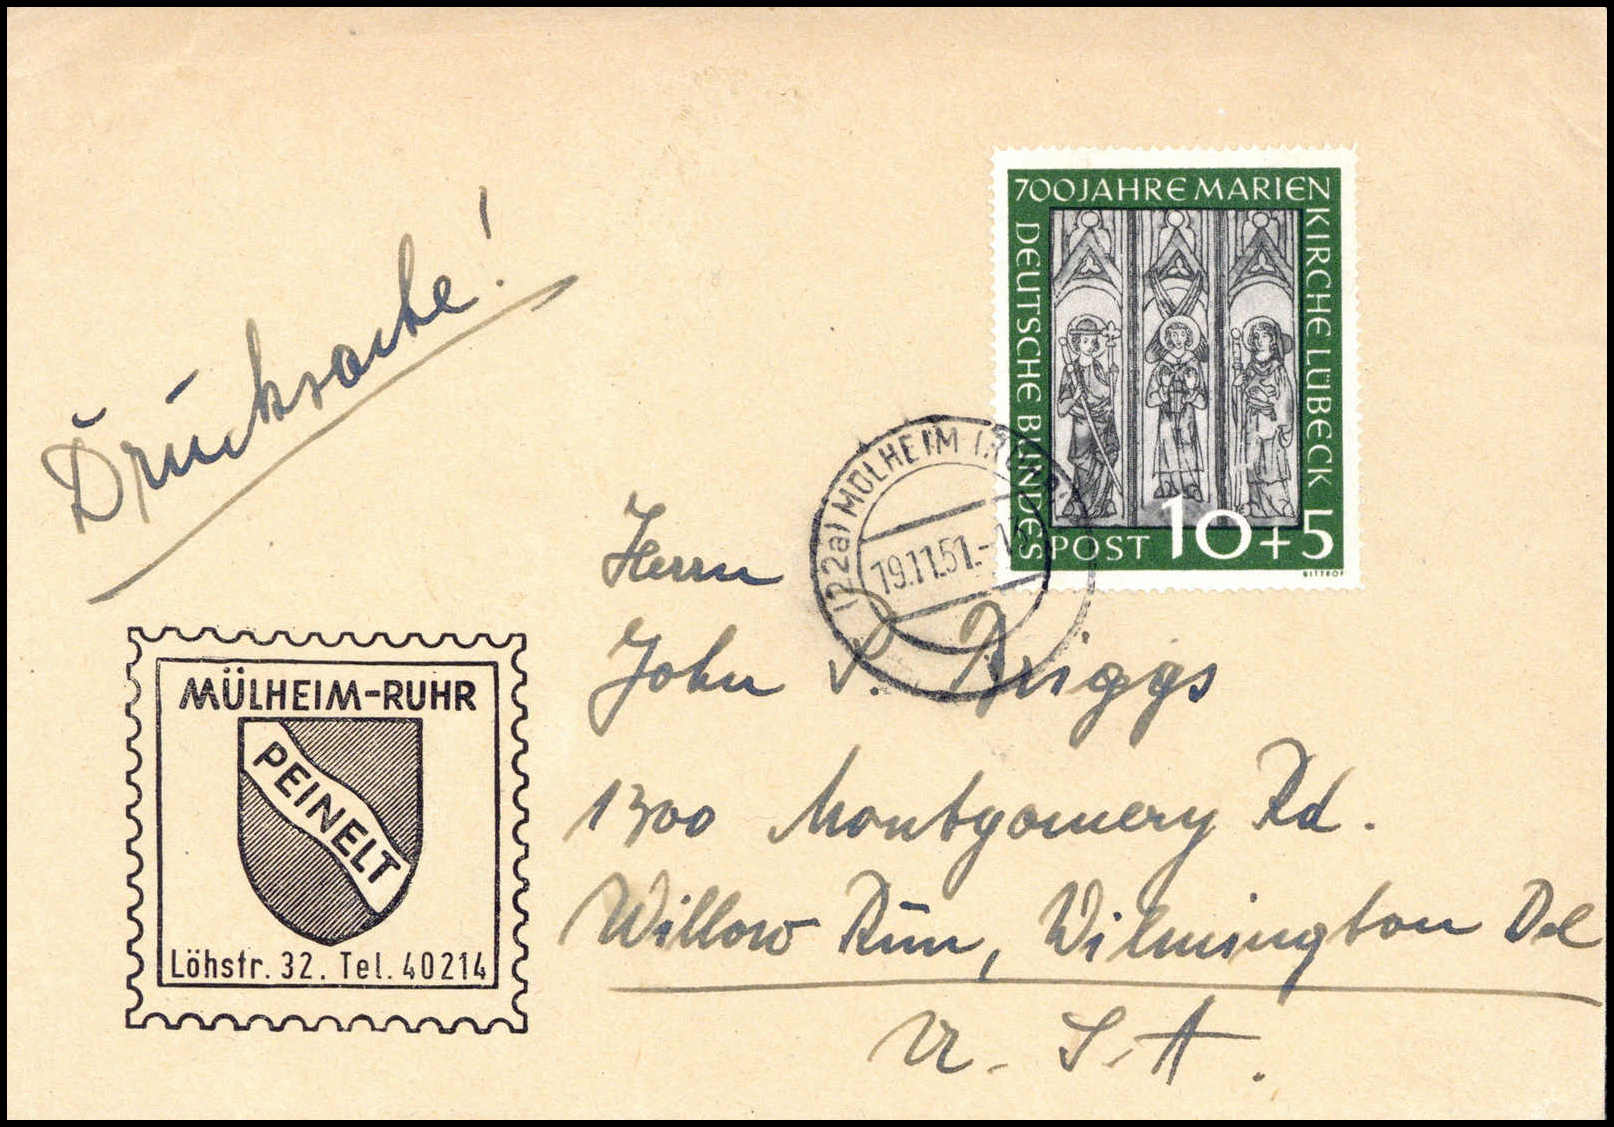 Drucksache!
700 JAHRE MARIEN
KIRCHE LÜBECK
DEUTSCHE BUNDES
POST 10+5
BITTROF
(22a) MÜLHEIM (RUHR)
19.11.51.-
Herrn
John S. Briggs
1300 Montgomery Rd.
Willow Run, Wilmington Del
U. S. A.
MÜLHEIM-RUHR
PEINELT
Löhstr. 32. Tel. 40214